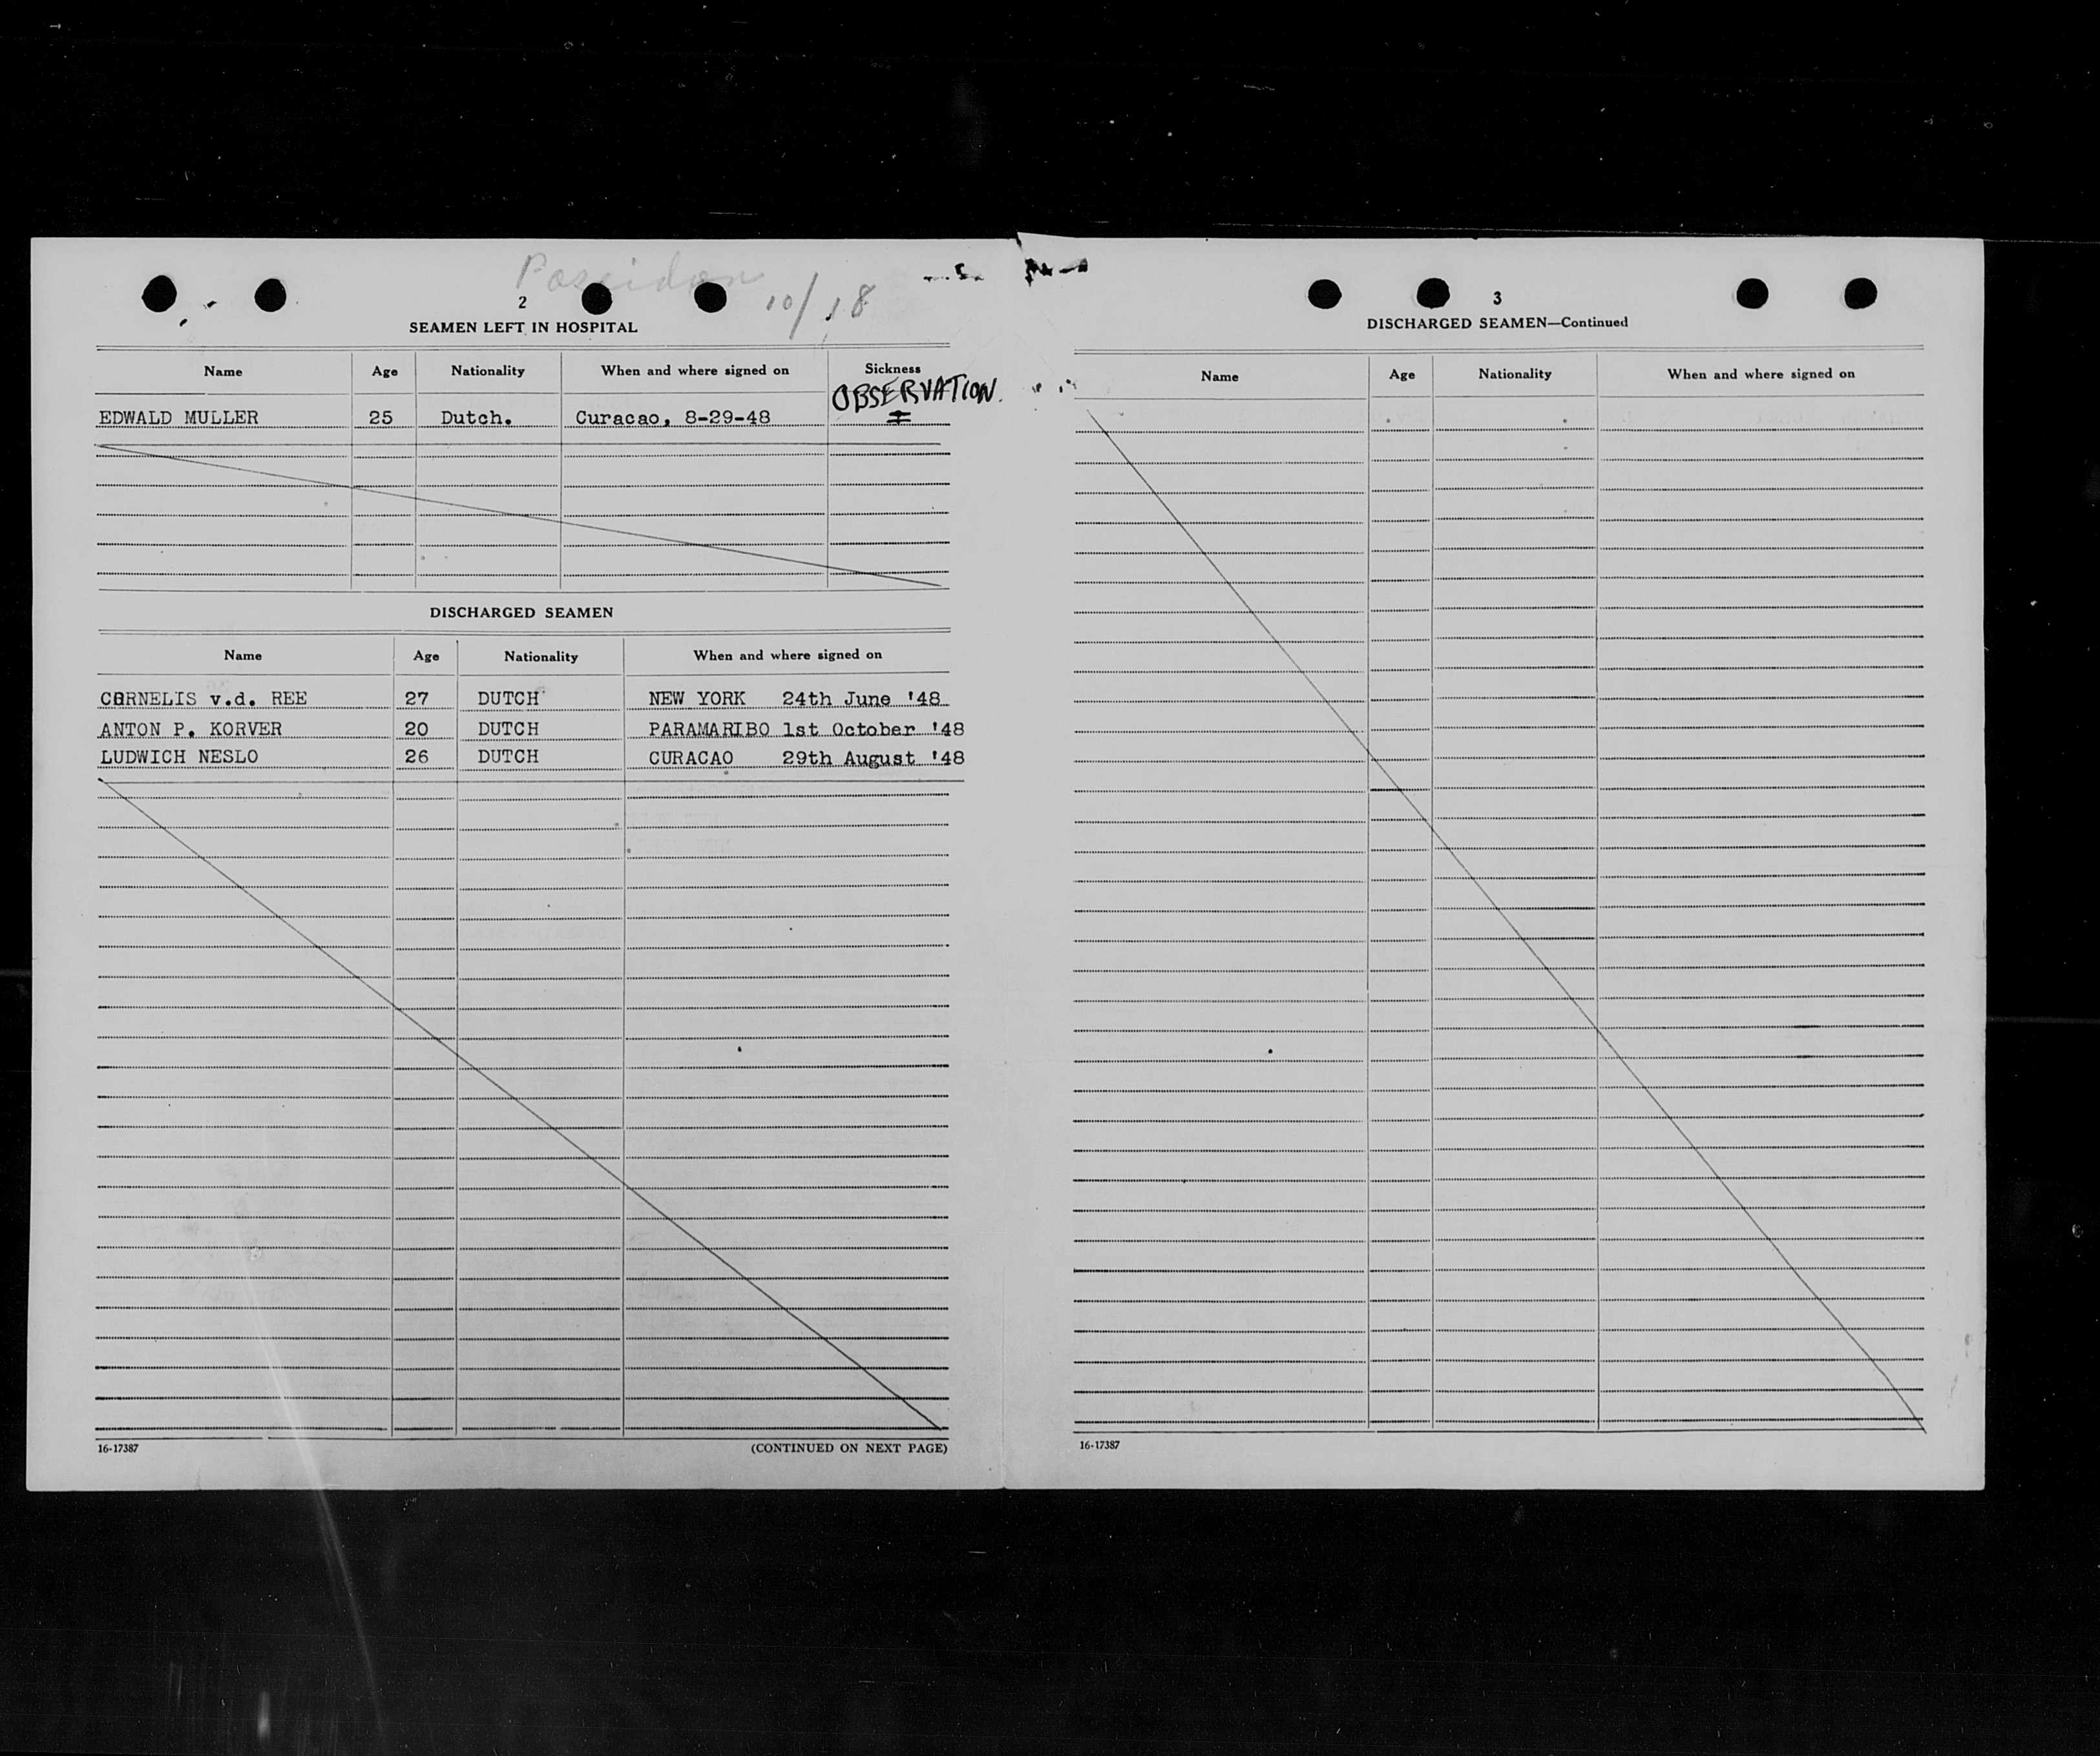 Poseidon
10/18
2
SEAMEN LEFT IN HOSPITAL
Name Age Nationality When and where signed on Sickness
OBSERVATION.
EDWALD MULLER 25 Dutch. Curacao, 8-29-48
DISCHARGED SEAMEN
Name Age Nationality When and where signed on
CORNELIS v.d. REE 27 DUTCH NEW YORK 24th June '48
ANTON P. KORVER 20 DUTCH PARAMARIBO 1st October '48
LUDWICH NESLO 26 DUTCH CURACAO 29th August '48
16-17387 (CONTINUED ON NEXT PAGE)
3
DISCHARGED SEAMEN—Continued
Name Age Nationality When and where signed on
16-17387